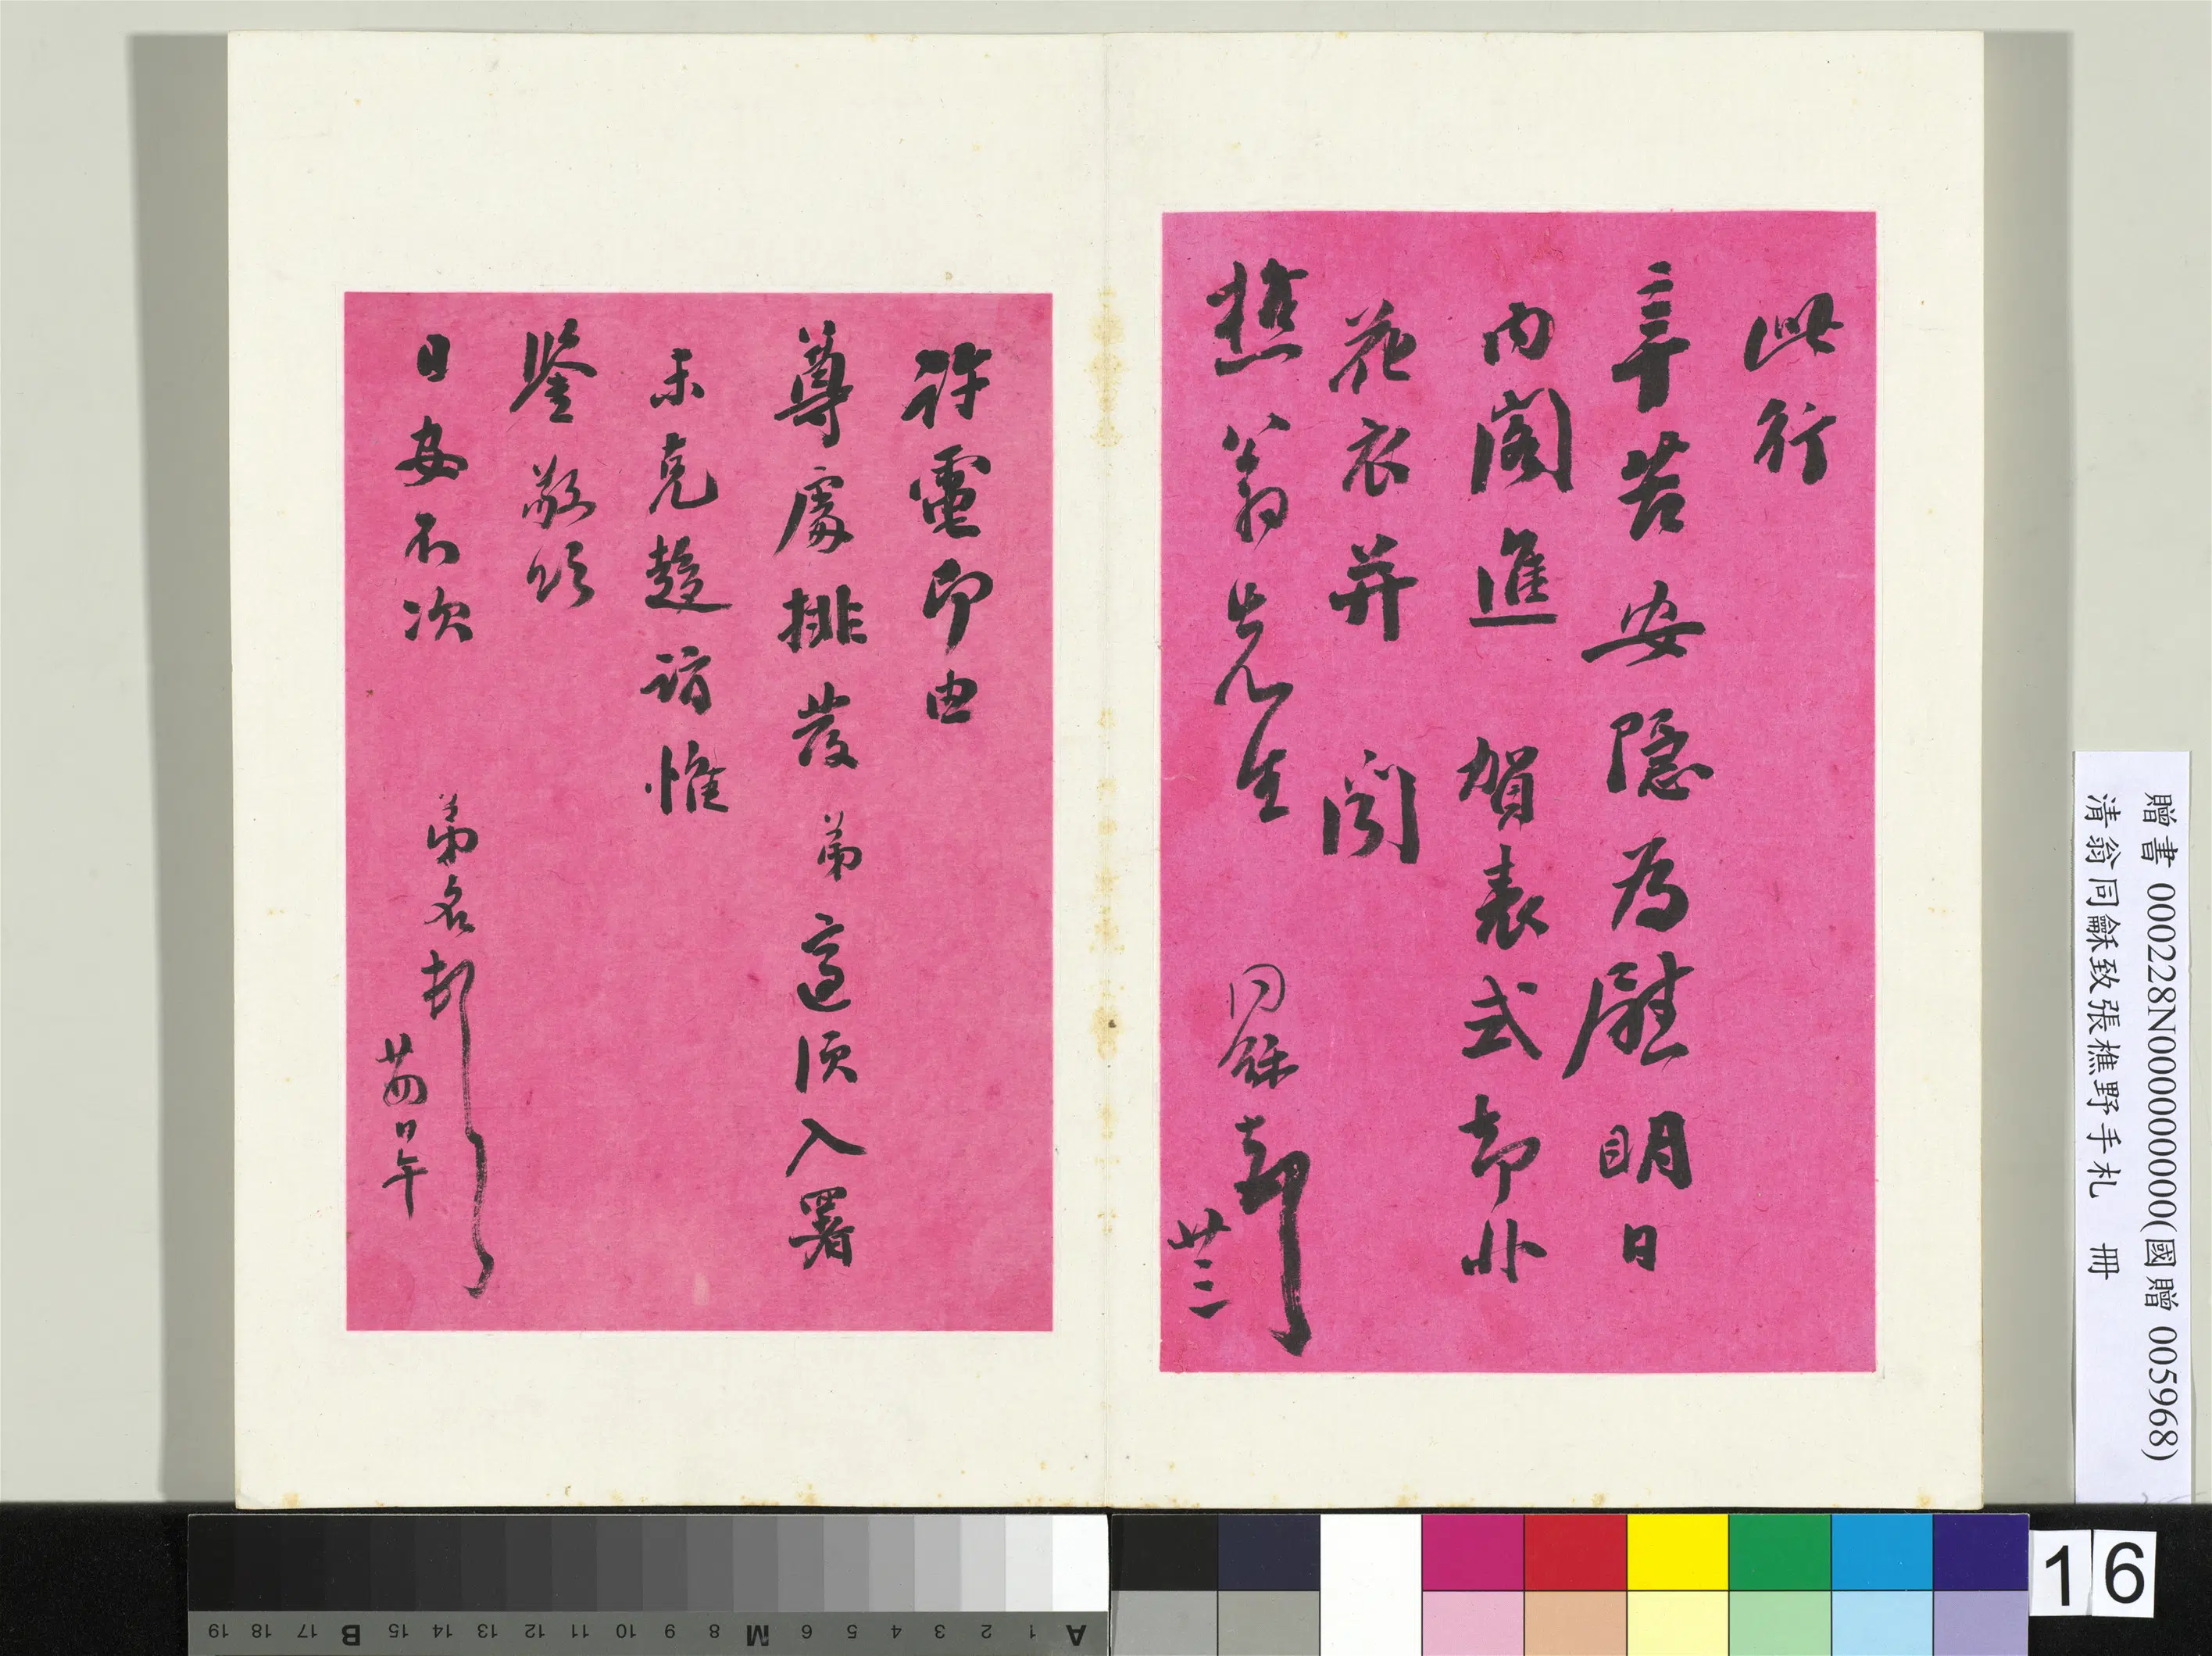 此行
辛苦安隱為慰明日
內閣進 賀表或卻非
花衣并 聞
樵翁先生 同龢頓首 廿三
許電即由
尊處排發弟適須入署
未克趨詣惟
鑒敬頌
日安不次
弟名頓首 廿四日午
贈書 000228N000000000(國贈 005968)
清翁同龢致張樵野手札 冊
16
A 1 2 3 4 5 6 M 8 9 10 11 12 13 14 15 B 17 18 19